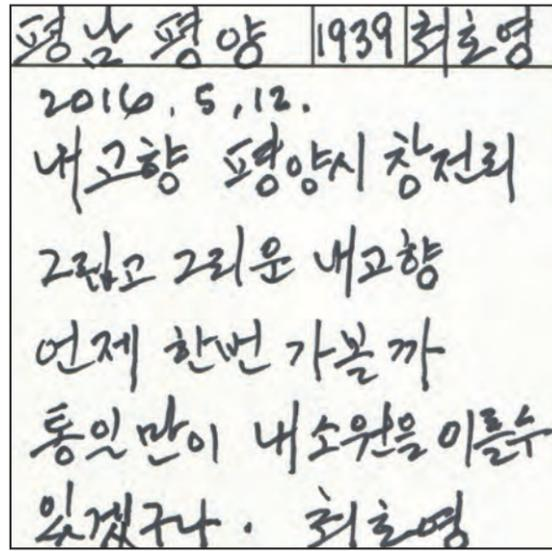 평남 평양 1939 최호영
2016. 5, 12.
내고향 평양시 창전리
그립고 그리운 내고향
언제 한번 가볼까
통일만이 내소원을 이룰수
있겠구나. 최호영